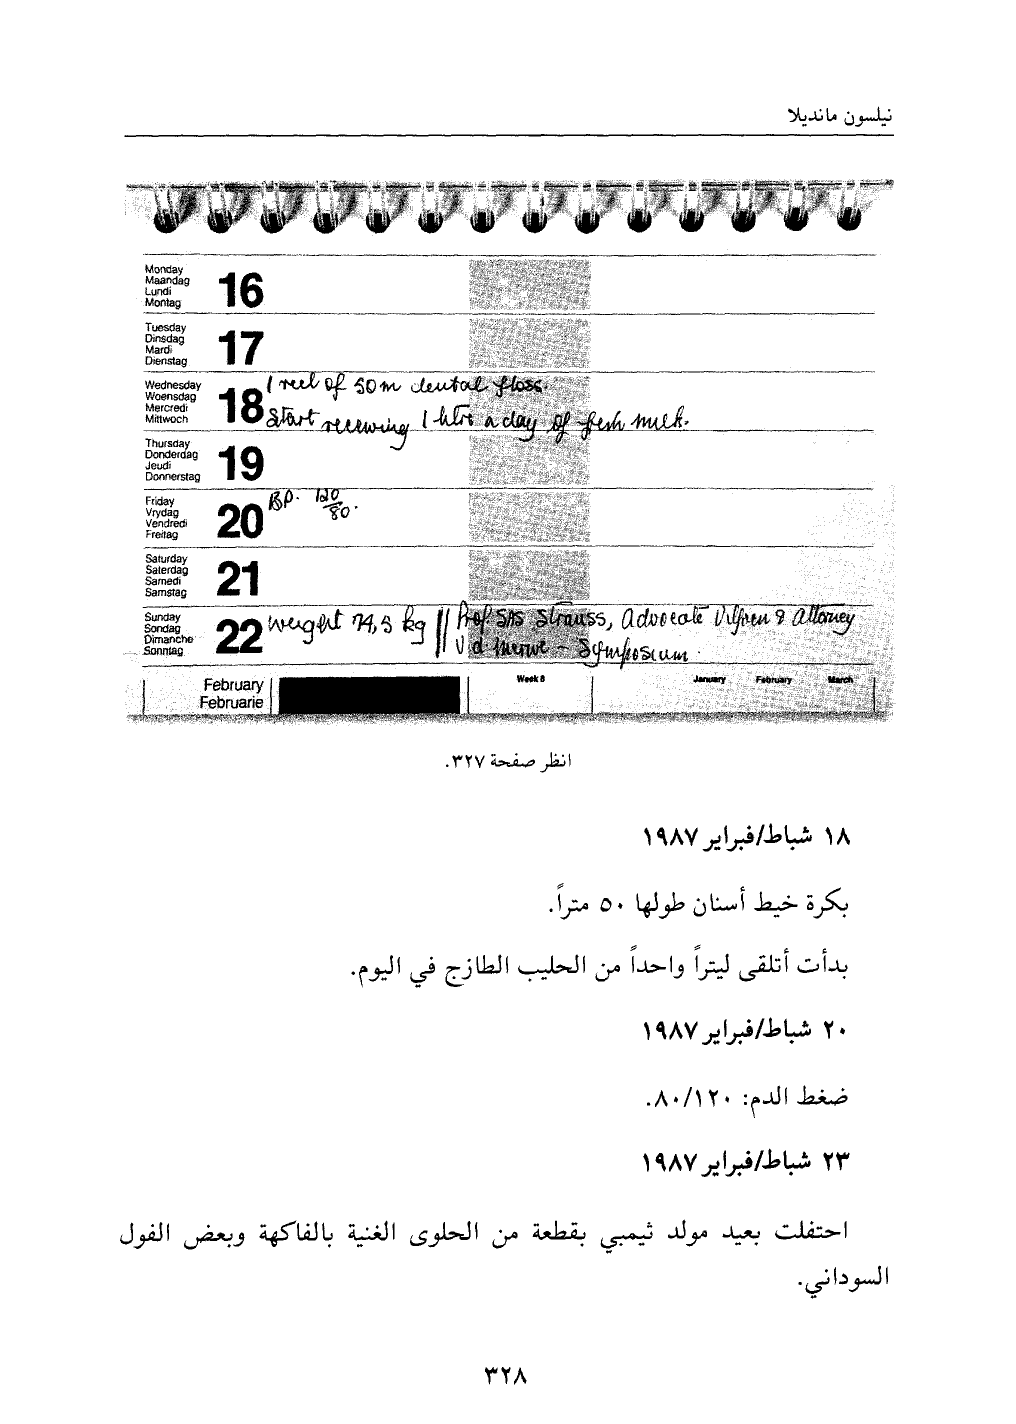 نيلسون مانديلا
Monday
Maandag
Lundi
Montag
16
Tuesday
Dinsdag
Mardi
Dienstag
17
Wednesday
Woensdag
Mercredi
Mittwoch
18
1 reel of 50m dental floss.
Start receiving 1 litre a day of fresh milk.
Thursday
Donderdag
Jeudi
Donnerstag
19
Friday
Vrydag
Vendredi
Freitag
20
BP. 120/80.
Saturday
Saterdag
Samedi
Samstag
21
Sunday
Sondag
Dimanche
Sonntag
22
weight 74,5 kg || Prof SAS Strauss, Advocate & Attorney
v d Merwe - Symposium
February
Februarie
Week 8
January February March
انظر صفحة ٣٢٧.
١٨ شباط/فبراير ١٩٨٧
بكرة خيط أسنان طولها ٥٠ متراً.
بدأت أتلقى ليتراً واحداً من الحليب الطازج في اليوم.
٢٠ شباط/فبراير ١٩٨٧
ضغط الدم: ٨٠/١٢٠.
٢٣ شباط/فبراير ١٩٨٧
احتفلت بعيد مولد ثيمبي بقطعة من الحلوى الغنية بالفاكهة وبعض الفول
السوداني.
٣٢٨